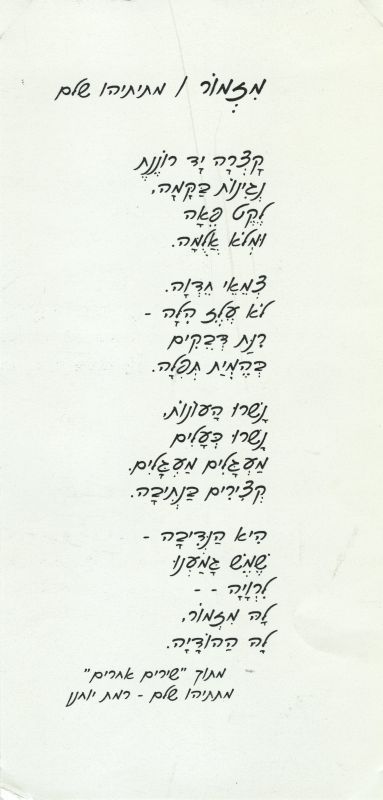 מִזְמוֹר / מתיתיהו שלם
קָצְרָה יָד רוֹנֶנֶת
נְגִינוֹת בַּקָּמָה,
לֶקֶט פֵּאָה
וּמְלֹא אֲלֻמָּה.
צְמֵאֵי חֶדְוָה.
לֹא עֶלֶז הִלָּה -
רִנַּת דְּבֵקִים
כְּהֶמְיַת תְּפִלָּה.
נָשְׁרוּ הָעוֹנוֹת,
נָשְׁרוּ כְּעָלִים
מַעְגָּלִים מַעְגָּלִים.
קְצִירִים בַּנְּתִיבָה.
הִיא הַנְּדִיבָה -
שֶׁמֶשׁ גָּמַעְנוּ
לִרְוָיָה - -
לָהּ מִזְמוֹר,
לָהּ הַהוֹדָיָה.
מתוך "שירים אחרים"
מתתיהו שלם - רמת יוחנן